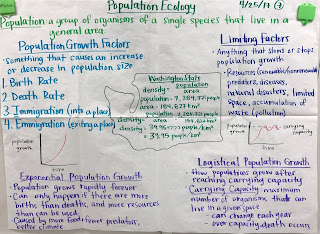 Population Ecology
4/25/19
Population: a group of organisms of a single species that live in a
general area.
Population Growth Factors
- something that causes an increase
or decrease in population size
1. Birth Rate
2. Death Rate
3. Immigration (into a place)
4. Emmigration (exiting a place)
Washington State
density = population
area
population = 7,
area =
density =
density =
people/km²
39.95 people/km²
Limiting Factors
- Anything that slows or stops
population growth
- Resources (renewable/nonrenewable)
predators, diseases,
natural disasters, limited
space, accumulation of
waste (pollution)
population
growth
Exponential Population Growth
- Population grows rapidly forever
- Can only happen if there are more
births than deaths, and more resources
than can be used.
- Caused by more food, fewer predators,
better climate
population
growth
carrying
capacity
Logistical Population Growth
- How populations grow after
reaching carrying capacity
- Carrying Capacity: maximum
number of organisms that can
live in a given space
- can change each year
- over capacity, death occurs